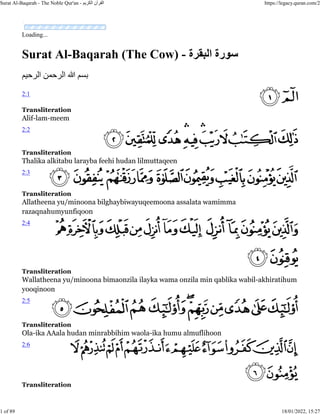 Surat Al-Baqarah - The Noble Qur'an - القرآن الكريم https://legacy.quran.com/2
Loading...
Surat Al-Baqarah (The Cow) - سورة البقرة
بسم الله الرحمن الرحيم
2:1
الٓمٓ ١
Transliteration
Alif-lam-meem
2:2
ذَٰلِكَ ٱلْكِتَٰبُ لَا رَيْبَ فِيهِ هُدًى لِّلْمُتَّقِينَ ٢
Transliteration
Thalika alkitabu larayba feehi hudan lilmuttaqeen
2:3
ٱلَّذِينَ يُؤْمِنُونَ بِٱلْغَيْبِ وَيُقِيمُونَ ٱلصَّلَوٰةَ وَمِمَّا رَزَقْنَٰهُمْ يُنفِقُونَ ٣
Transliteration
Allatheena yu/minoona bilghaybiwayuqeemoona assalata wamimma
razaqnahumyunfiqoon
2:4
وَٱلَّذِينَ يُؤْمِنُونَ بِمَآ أُنزِلَ إِلَيْكَ وَمَآ أُنزِلَ مِن قَبْلِكَ وَبِٱلْءَاخِرَةِ هُمْ
يُوقِنُونَ ٤
Transliteration
Wallatheena yu/minoona bimaonzila ilayka wama onzila min qablika wabil-akhiratihum
yooqinoon
2:5
أُو۟لَٰٓئِكَ عَلَىٰ هُدًى مِّن رَّبِّهِمْ ۖ وَأُو۟لَٰٓئِكَ هُمُ ٱلْمُفْلِحُونَ ٥
Transliteration
Ola-ika AAala hudan minrabbihim waola-ika humu almuflihoon
2:6
إِنَّ ٱلَّذِينَ كَفَرُوا۟ سَوَآءٌ عَلَيْهِمْ ءَأَنذَرْتَهُمْ أَمْ لَمْ تُنذِرْهُمْ لَا
يُؤْمِنُونَ ٦
Transliteration
1 of 89 18/01/2022, 15:27